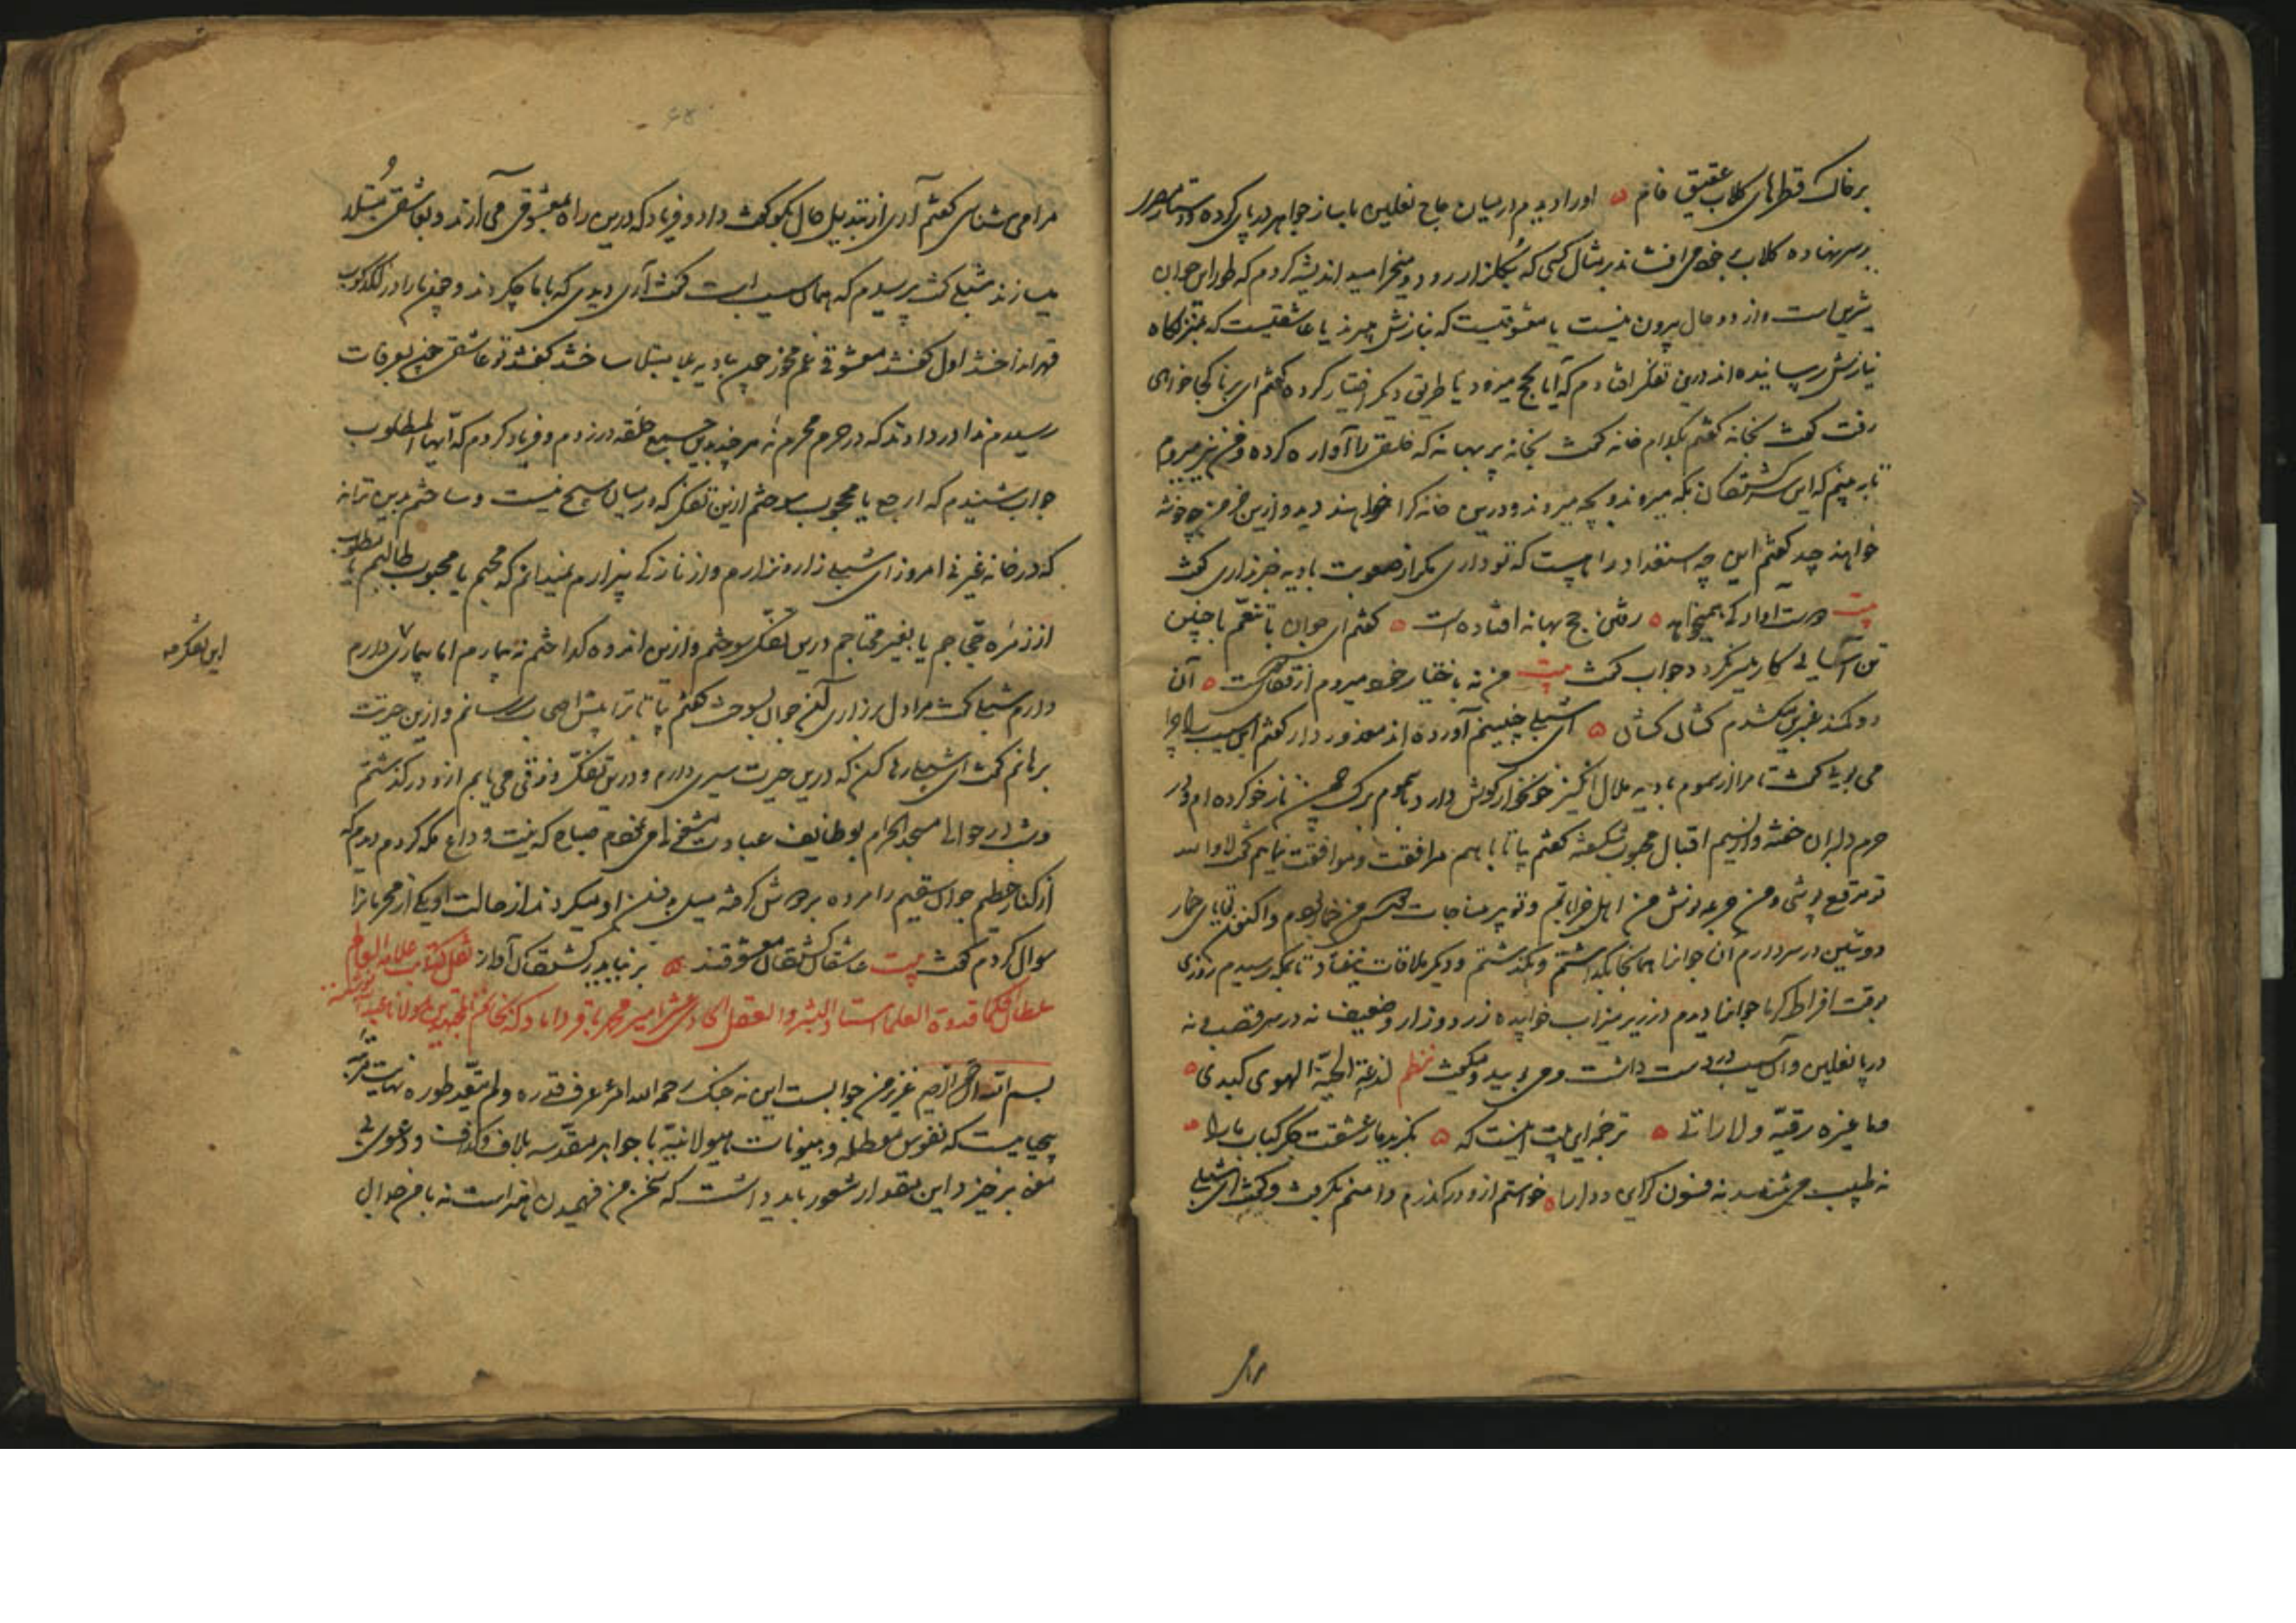 بر خاک قطرهای گلاب عقیق فام ه او را دیدم در میان حاج نعلین با ساز جواهر در پای کرده و دستار
بر سر نهاده گلاب بر خود می افشاند بر مثال کسی که بگلزار رود و میخرامید اندیشه کردم که طور این جوان
شیرین است و از دو حال بیرون نیست یا معشوقیست که بنازش میبرند یا عاشقیست که
نیازش رسانیده اند درین تفکر افتادم که آیا بحج میرود یا طریقی دیگر اختیار کرده گفتم ای برنا کجا خواهی
رفت گفت بخانه گفتم بکدام خانه گفت بخانه پر بهانه که خلقی را آواره کرده و من نیز میروم
تا ببینم که این سرگشتگان بکه میروند و بچه میروند و درین خانه کرا خواهند دید و ازین خرمن چه خوشه
خواهند چید گفتم این چه استعداد راهست که تو داری مگر از صعوبت بادیه خبر نداری گفت
بیت دوست آواره کی همیخواهد ه رفتن حج بهانه افتاده است ه گفتم ای جوان با تنعم با چنین
تن آسانی کار میسر نگردد جواب گفت بیت من نه باختیار خود میروم از قفای دوست ه آن
دو کمند عنبرین میکشدم کشان کشان ه ای شبلی چنینم آورده اند معذور دار گفتم این سیب را چرا
می بویی گفت تا مرا از سموم بادیه ملال انگیز خونخوار گوش دارد با سموم برگ چمن ناز خو کرده ام و در
حرم دلبران خفته و از نسیم اقبال محبوب شکفته گفتم بیا تا با هم مرافقت و موافقت نماییم گفت لا والله
تو مرقع پوشی و من جرعه نوش من اهل خراباتم و تو پیر مناجات من خمار
دوشین در سر دارم آن جوانرا همانجا بگذاشتم و بگذشتم و دیگر ملاقات نیفتاد تا بمکه رسیدم روزی
بوقت افراط گرما جوانرا دیدم در زیر میزاب خوابیده زرد و زار و ضعیف نه در سر قصب و نه
در پا نعلین و آن سیب در دست داشت و می بویید و میگفت نظم لدغة الحیة الهوی کبدی ه
ما غیره رقیة ولا راقی ه ترجمه این بیت اینست که ه بگزید مار عشقت جگر کباب ما را ه
نه طبیب می شناسد نه فسون گری دوا را ه خواستم ازو درگذرم دامنم بگرفت و گفت ای شبلی
مرا می شناسی گفتم آری از تبدیل حال بگو گفت داد و فریاد که درین راه بمعشوقی می آرند و بعاشقی مبتلا
میسازند شبلی گفت پرسیدم که همان سیب است گفت آری دیدی که با ما چکردند و چون ما را در لگدکوب
قهر انداختند اول گفتند معشوقی غم مخور چون ببادیه بلا مبتلا ساختند گفتند تو عاشقی چون بعرفات
رسیدم ندا در دادند که در حرم محرم نه هر چند حلقه در زدم و فریاد کردم که ایها المطلوب
جواب شنیدم که ارجع یا محجوب سوختم ازین تفکر که در میان هیچ نیست و ساختم بدین ترانه
که در خانه غیر نی امروز ای شبلی زاره نزارم و از نازکی بیزارم نمیدانم که محبم یا محبوب طالبم یا مطلوب
از زمره حجاجم یا بغیر محتاجم درین تفکر سوختم و ازین اندوه گداختم نه بیمارم اما بیماری دارم
این تفکر مه
دارم شبلی گفت مرا دل بزاری آن جوان بسوخت گفتم بیا تا ترا پیش اصحاب رسانم و ازین حیرت
برهانم گفت ای شبلی رها کن که درین حیرت سری دارم و درین تفکر ذوقی می یابم ازو درگذشتم
و شب در حوالی مسجد الحرام بوظایف عبادت مشغولی می نمودم صباح که نیت وداع مکه کردم دیدم که
از کنار حطیم جوان سقیم را مرده بر دوش گرفته میل بدفن او میکردند از حالت او یکی از محرمان را
سوال کردم گفت بیت عاشقان کشتگان معشوقند ه بر نیاید ز کشتگان آواز نقل کتابت علامه العلما
سلطان الحکما قدوة العلما استاد البشر والعقل الحادی عشر امیر محمد باقر داماد که بخاتم المجتهدین مولانا عبدالله نوشته
بسم الله الرحمن الرحیم عزیز من جوابست این نه جنگ رحم الله امرء عرف قدره ولم یتعد طوره نهایت مرتبه
بیحیاییست که نفوس معطله و هیونات هیولانیه با جواهر مقدسه بلاف و گزاف و دعوی بی
معنی برخیزد این مقدار شعور باید داشت که سخن من فهمیدن هنر است نه با من جدال